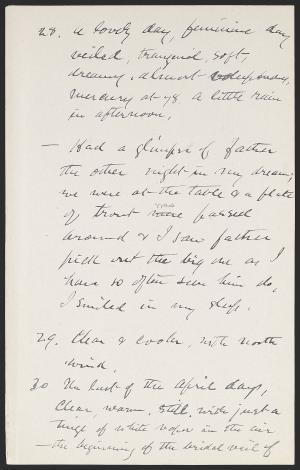 28. A lovely day, feminine day
veiled, tranquil, soft,
dreamy, almost voluptuous,
mercury at 48 a little rain
in afternoon.
— Had a glimpse of father
the other night in my dreams;
we were at the table & a plate
of trout was passed
around & I saw father
pick out the big one as I
have so often seen him do,
I smiled in my sleep.
29. Clear & cooler, with north
wind.
30 The last of the April days,
clear, warm, still, with just a
tinge of white vapor in the air
— the beginning of the bridal veil of